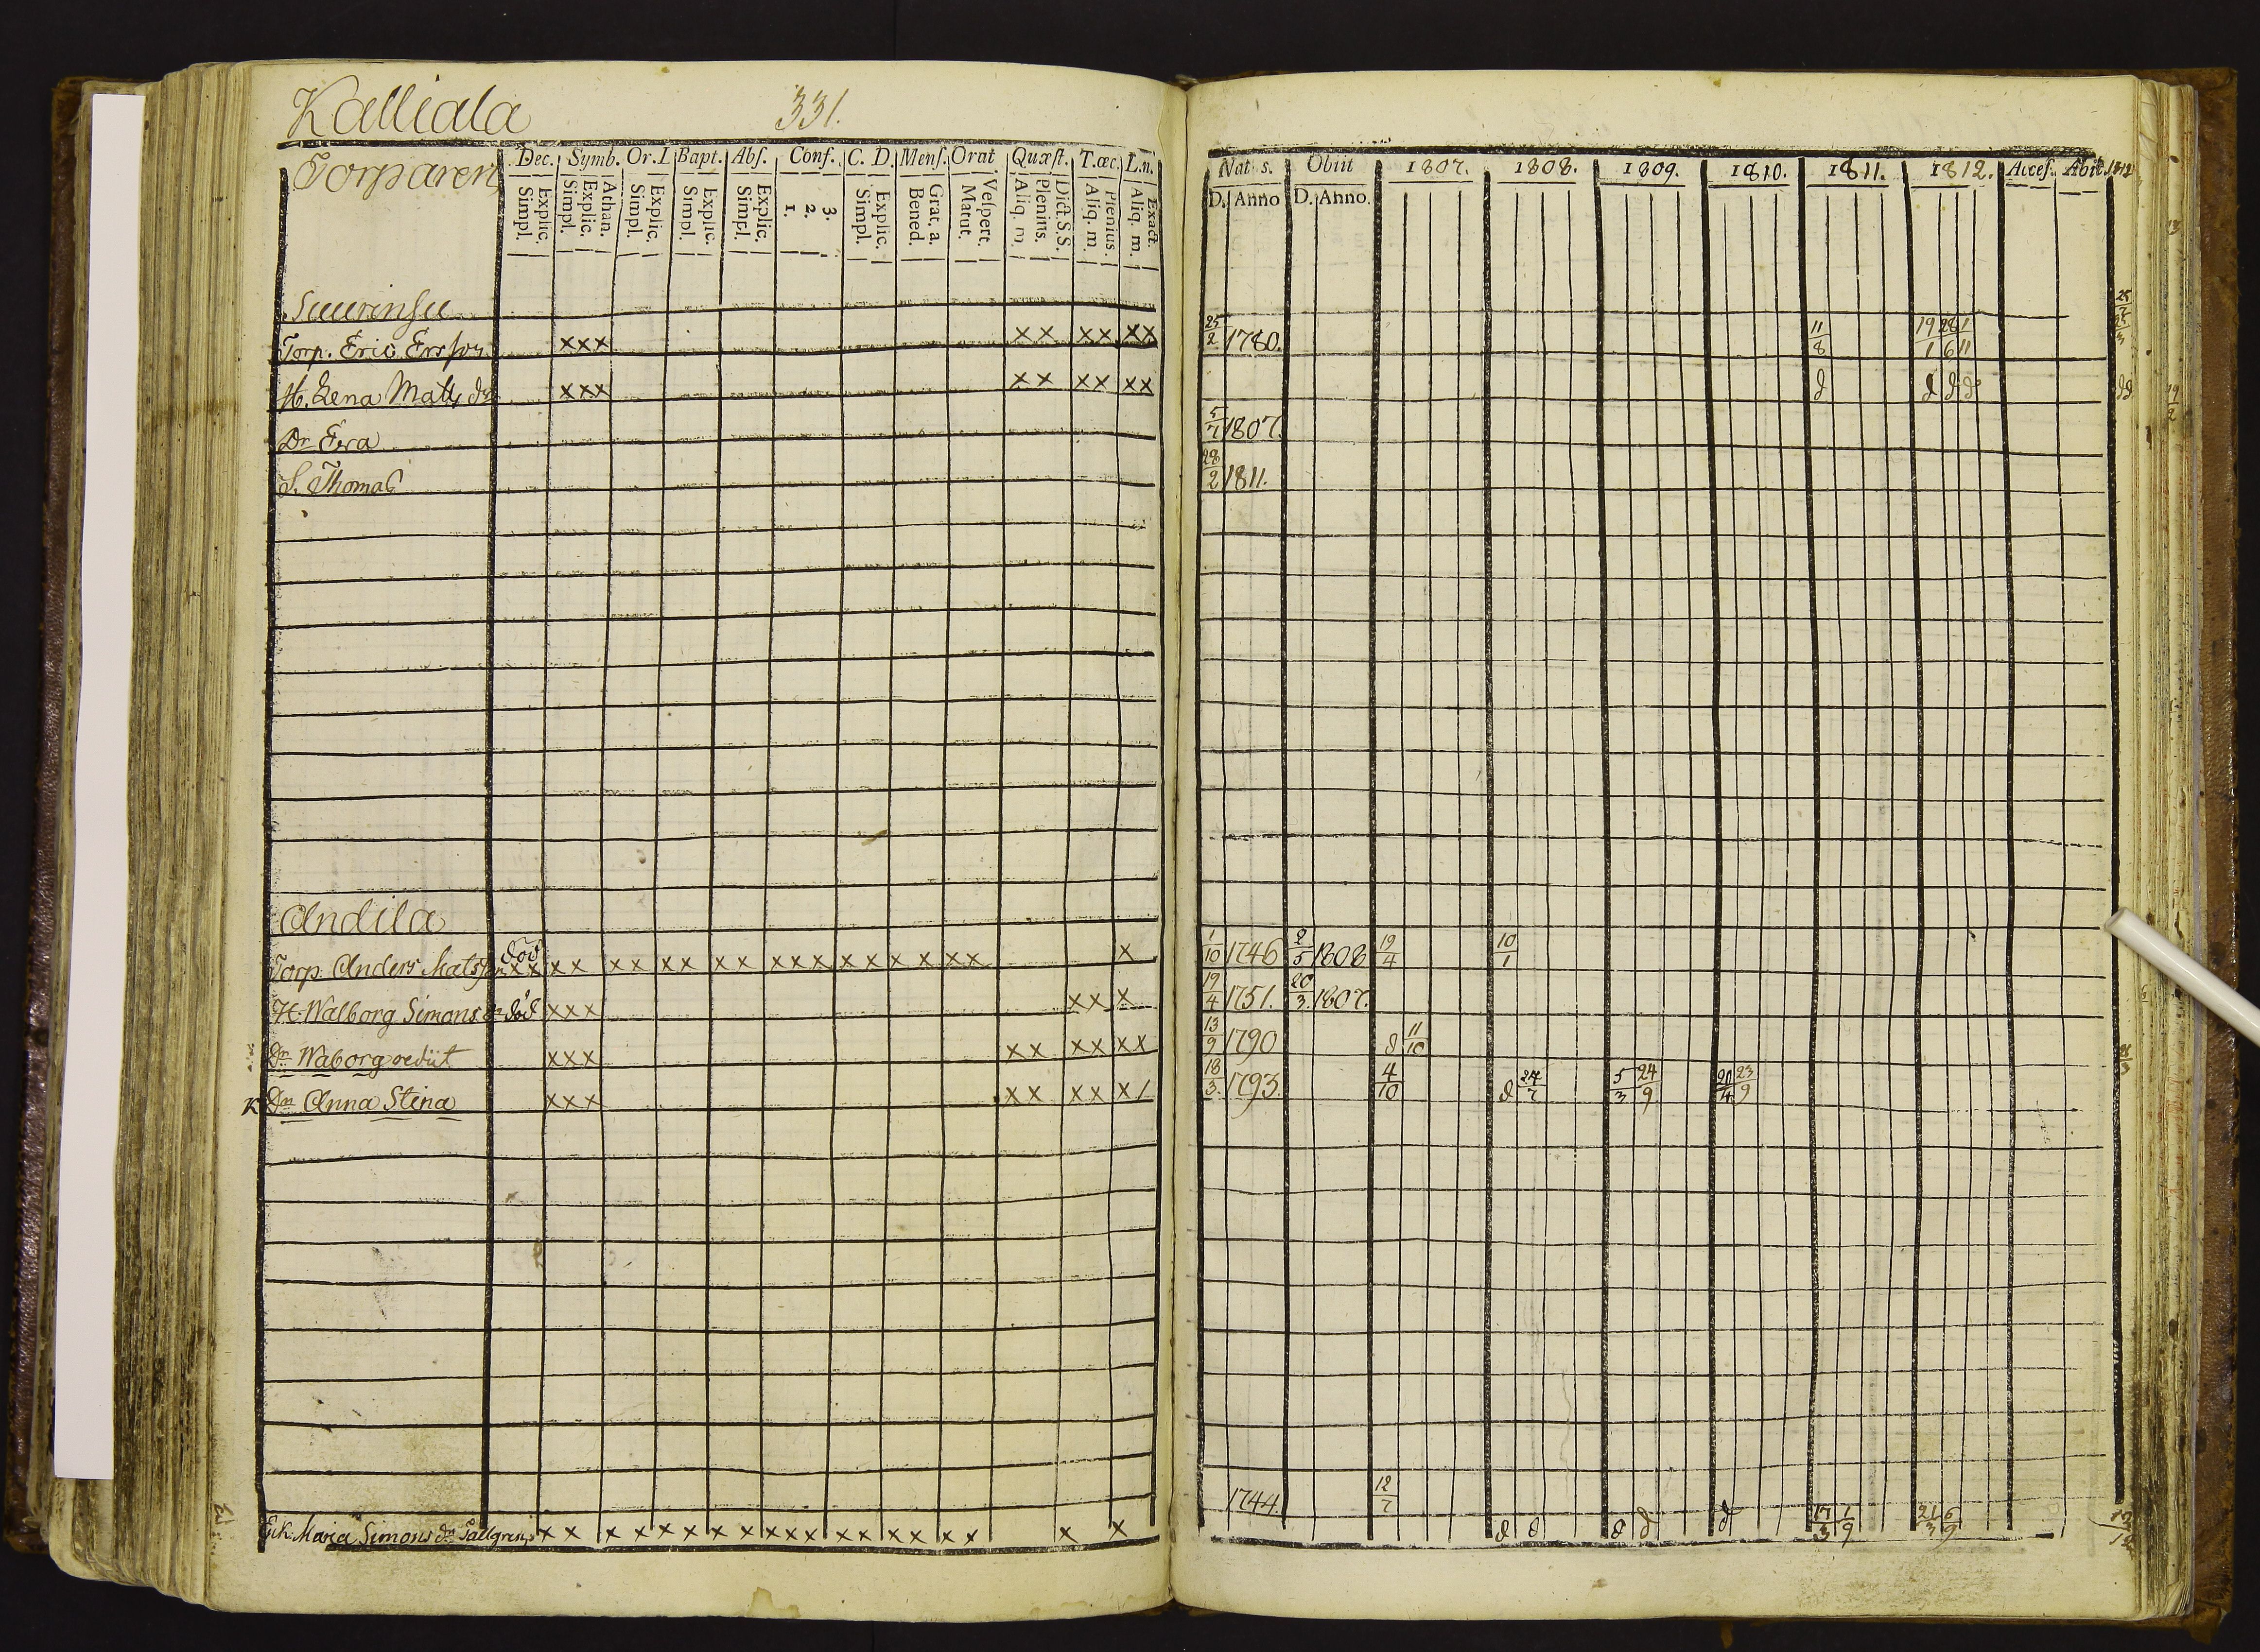 Kalliala 331.
Torparen Dec. Symb. Or. I. Bapt. Abſ. Conf. C. D. Menſ. Orat Quæſt. T. œc. L. n.
Explic. Simpl. Athan. Explic. Simpl. Explic. Simpl. Explic. Simpl. Explic. Simpl. 3. 2. 1. Explic. Simpl. Grat. a. Bened. Veſpert. Matut. Dict. S.S. Plenius. Aliq. m. Plenius. Aliq. m. Exact. Aliq. m.
Torp. Eric Ersson xxx xx xx xx
H. Lena Matts dr xxx xx xx xx
Dr Eva
S. Thomas
Andila
Torp. Anders Matsson död xx xx xx xx xx xxx xx x x xx x
H. Walborg Simons dr död xxx xx x
Dr Waborg rediit xxx xx xx xx
K Dr Anna Stina xxx xx xx x/
Enk. Maria Simons dr Tallgren x x x x x x x x x x x x x x x x x x x x
Nat s. Obiit 1807. 1808. 1809. 1810. 1811. 1812. Acceſ. Abit
D. Anno D. Anno.
25/2 1780. 11/8 19/1 28/6 1/11
d d d d
5/7 1807.
28/2 1811.
1/10 1746 2/5 1808 19/4 10/1
19/4 1751. 20/3 1807.
13/9 1790 d 11/10
18/3 1793. 4/10 d 24/7 5/3 24/9 20/4 23/9
1744. 12/7 d d d d d 17/3 1/9 21/3 6/9